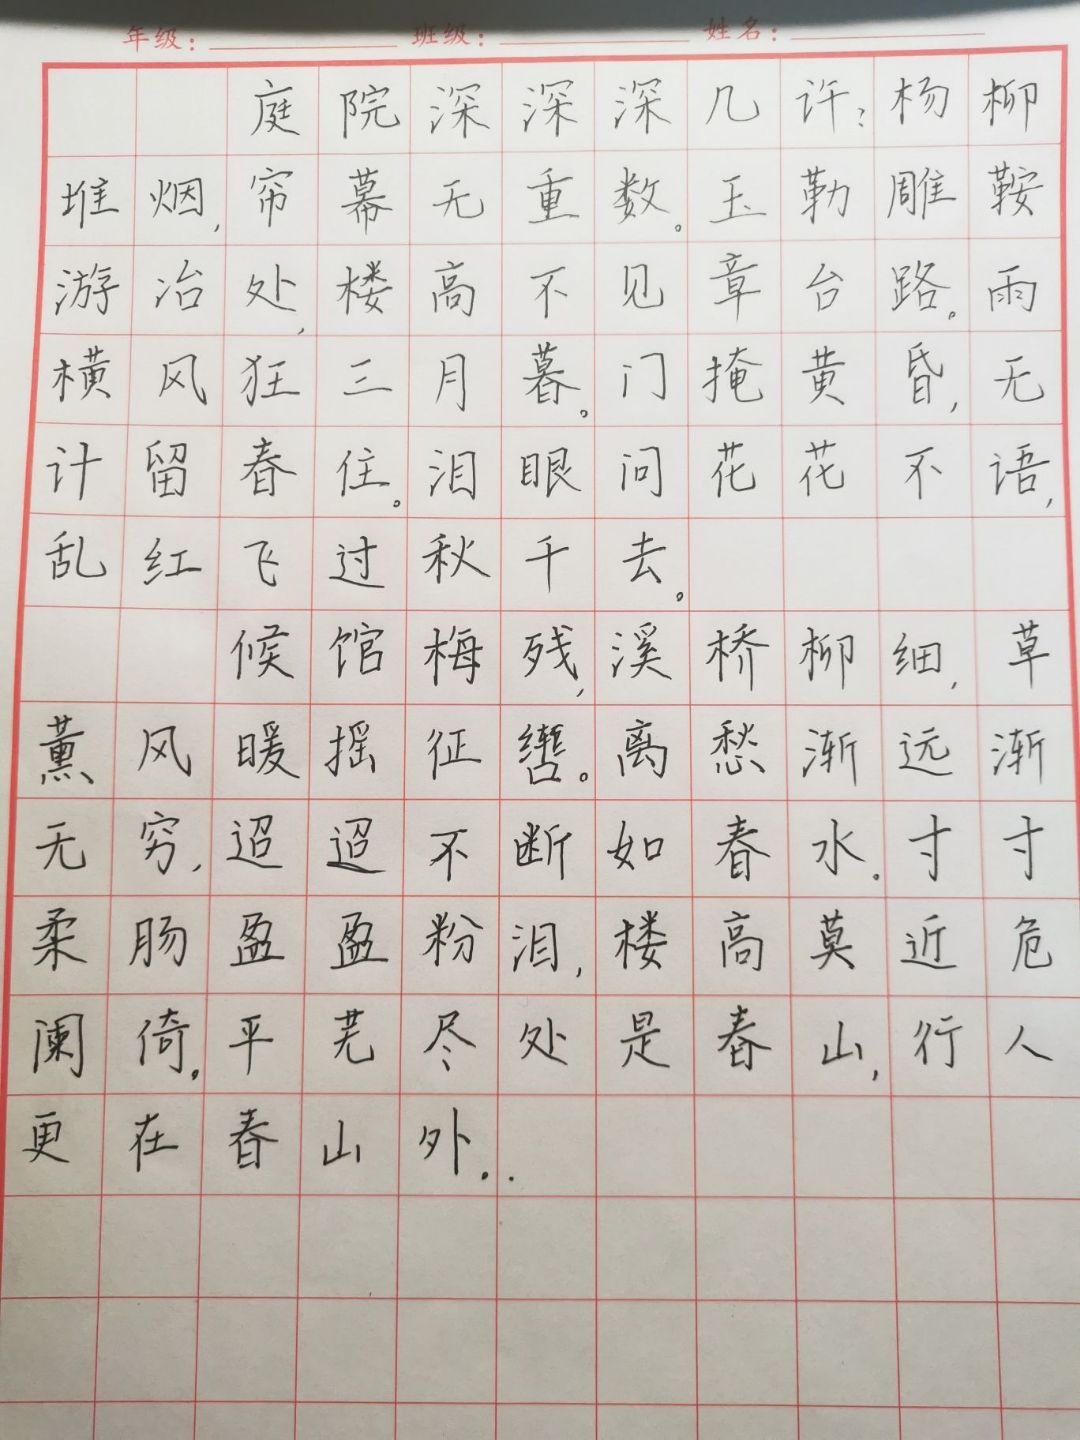 年级： 班级： 姓名：
庭院深深深几许？杨柳
堆烟，帘幕无重数。玉勒雕鞍
游冶处，楼高不见章台路。雨
横风狂三月暮。门掩黄昏，无
计留春住。泪眼问花花不语，
乱红飞过秋千去。
候馆梅残，溪桥柳细，草
薰风暖摇征辔。离愁渐远渐
无穷，迢迢不断如春水。寸寸
柔肠盈盈粉泪，楼高莫近危
阑倚。平芜尽处是春山，行人
更在春山外。.